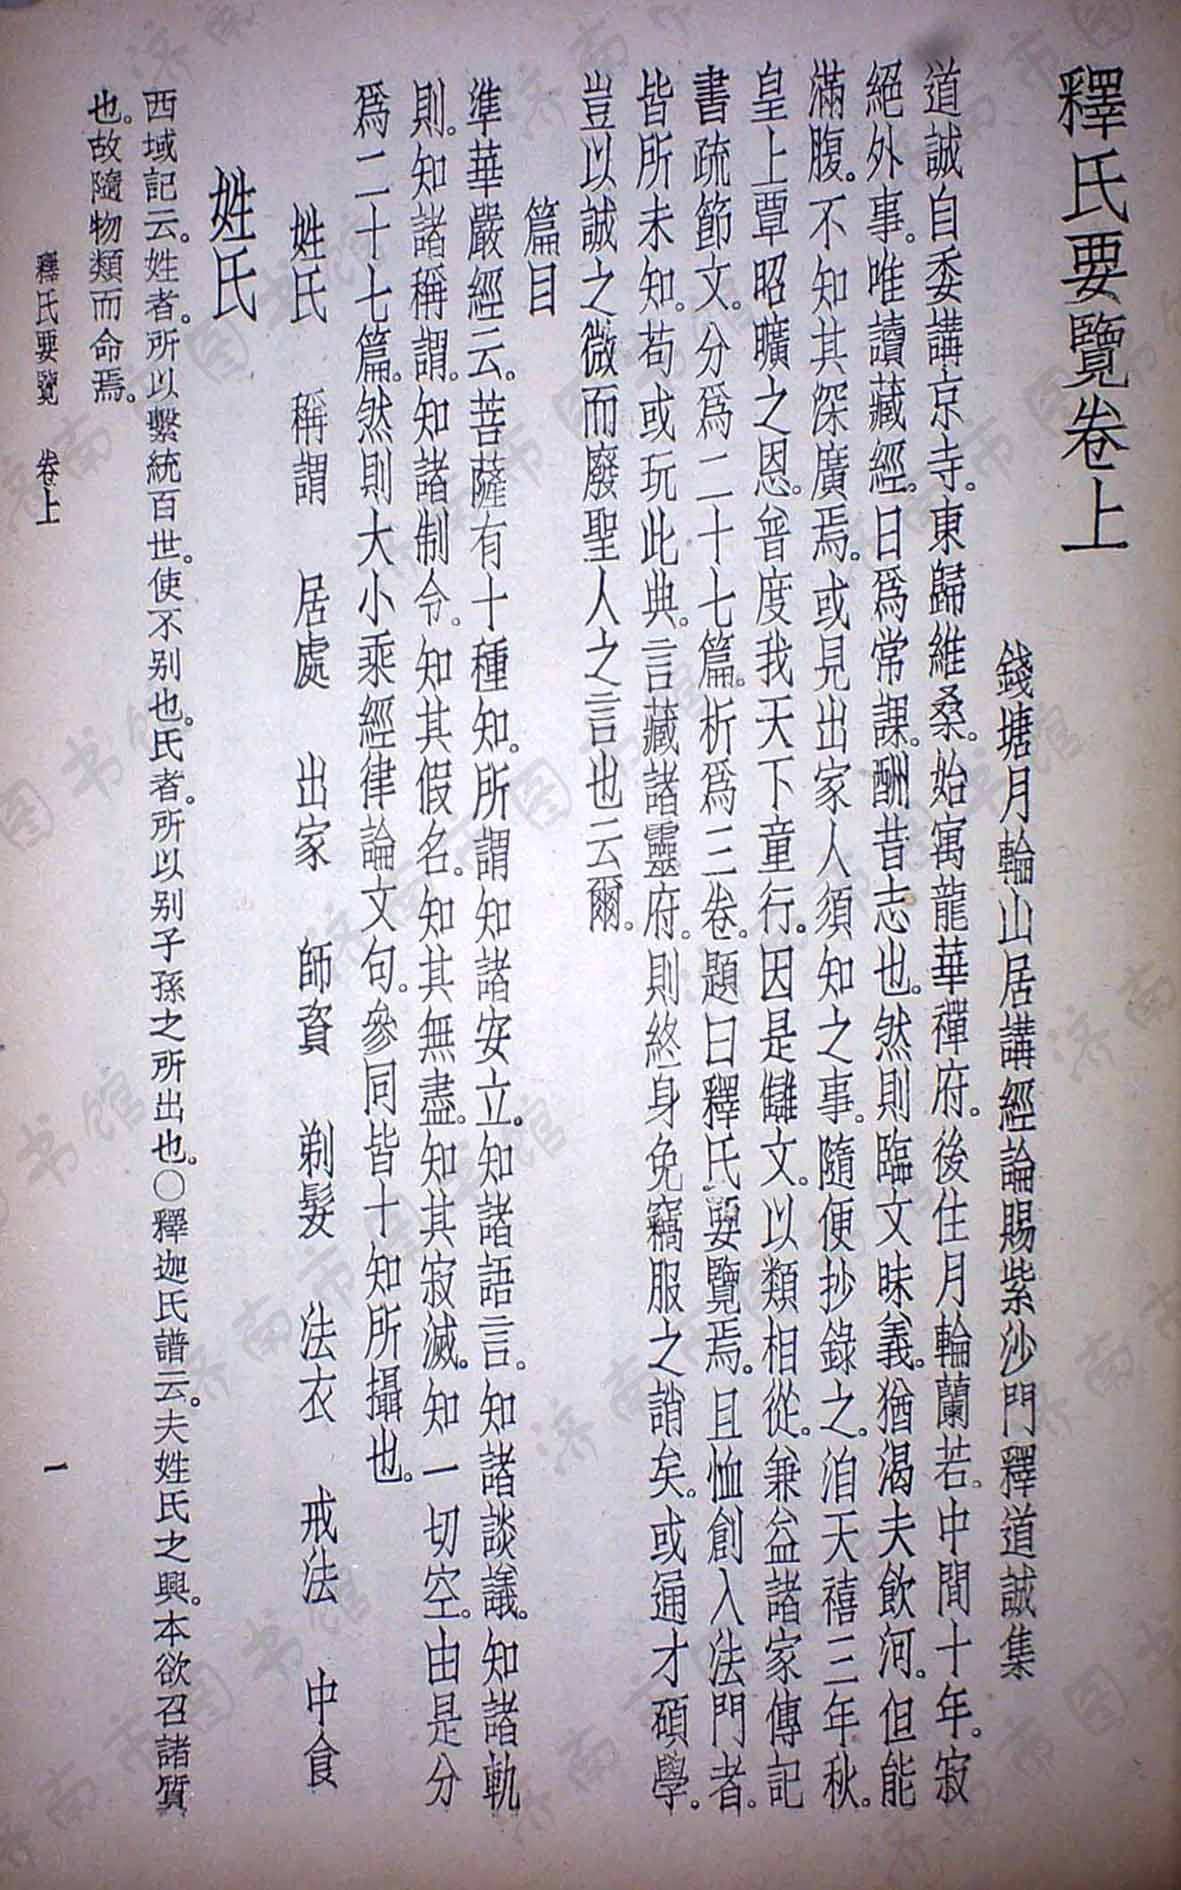 釋氏要覽卷上
錢塘月輪山居講經論賜紫沙門釋道誠集
道誠自委講京寺。東歸維桑。始寓龍華禪府。後住月輪蘭若。中間十年。寂
絕外事。唯讀藏經。日爲常課。酬昔志也。然則臨文昧義。猶渴夫飲河。但能
滿腹。不知其深廣焉。或見出家人須知之事。隨便抄錄之。洎天禧三年秋。
皇上覃昭曠之恩。普度我天下童行。因是讎文。以類相從。兼益諸家傳記
書疏節文。分爲二十七篇。析爲三卷。題曰釋氏要覽焉。且恤創入法門者。
皆所未知。苟或玩此典。言藏諸靈府。則終身免竊服之誚矣。或通才碩學。
豈以誠之微而廢聖人之言也云爾。
篇目
準華嚴經云。菩薩有十種知。所謂知諸安立。知諸語言。知諸談議。知諸軌
則。知諸稱謂。知諸制令。知其假名。知其無盡。知其寂滅。知一切空。由是分
爲二十七篇。然則大小乘經律論文句。參同皆十知所攝也。
姓氏 稱謂 居處 出家 師資 剃髮 法衣 戒法 中食
姓氏
西域記云。姓者。所以繫統百世。使不别也。氏者。所以别子孫之所出也。○釋迦氏譜云。夫姓氏之興。本欲召諸質
也。故隨物類而命焉。
釋氏要覽 卷上 一
济南市图书馆